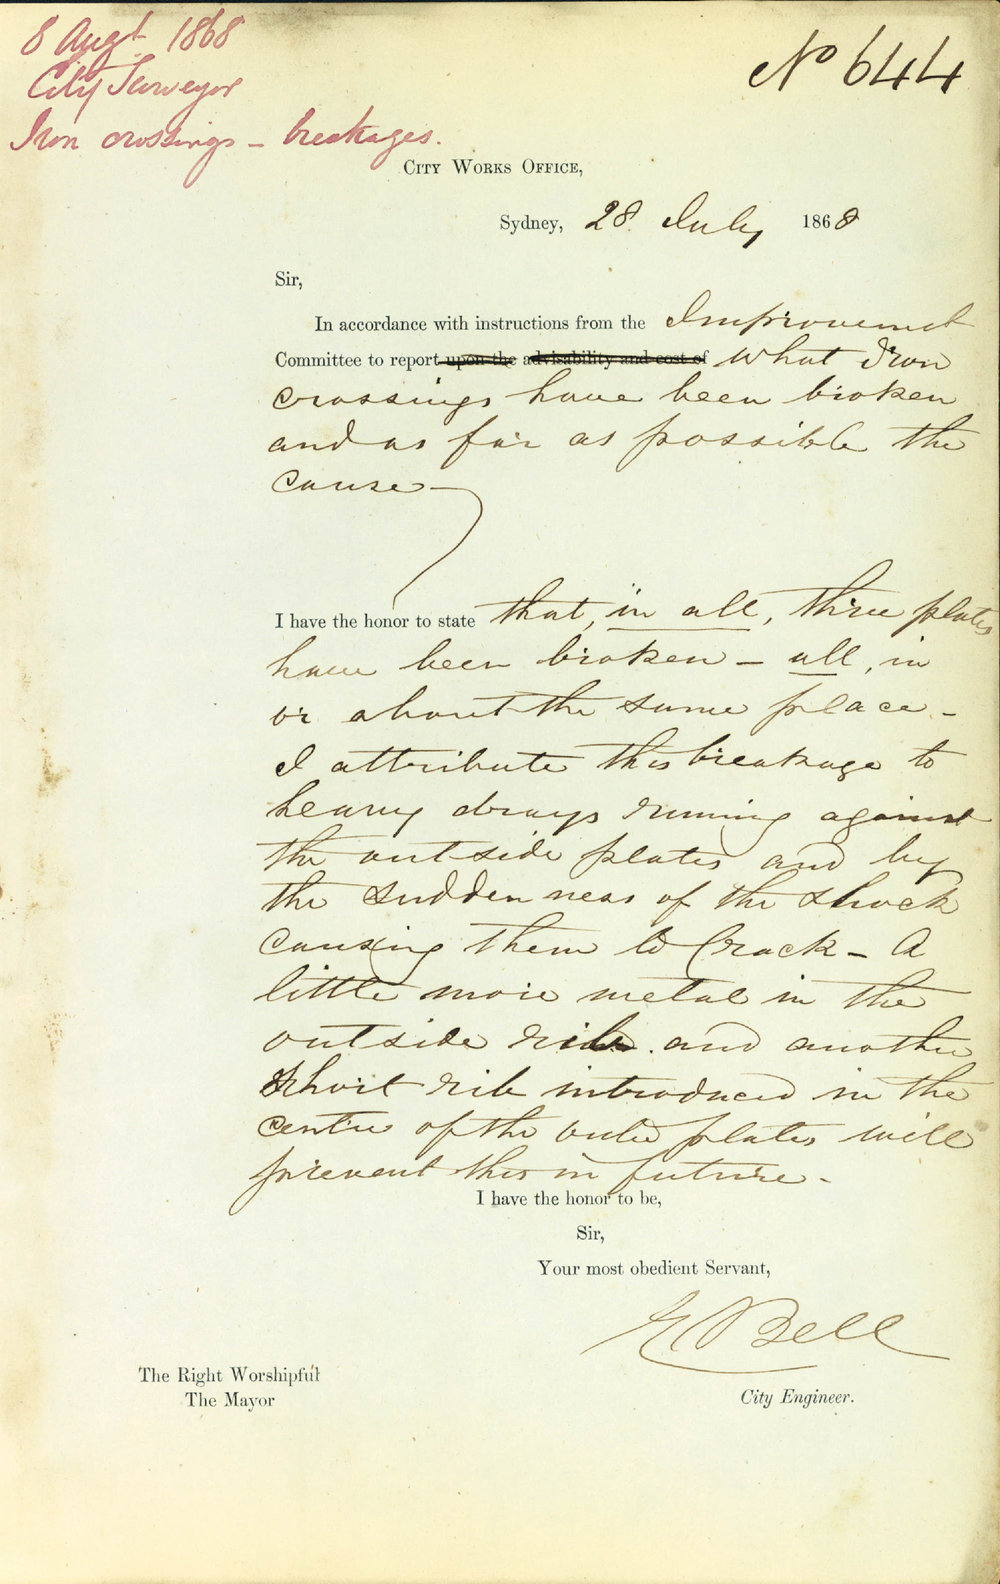 8 Augt 1868
City Surveyor
Iron crossings - breakages.
No 644
City Works Office,
Sydney, 28 July 1868
Sir,
In accordance with instructions from the Improvement
Committee to report upon the advisability and cost of what Iron
crossings have been broken
and as far as possible the
cause -
I have the honor to state that, in all, three plates
have been broken - all, in
or about the same place -
I attribute this breakage to
heavy drays running against
the outside plates and by
the suddenness of the shock
causing them to crack - A
little more metal in the
outside rib and another
short rib introduced in the
centre of the outer plates will
prevent this in future. -
I have the honor to be,
Sir,
Your most obedient Servant,
E Bell
City Engineer.
The Right Worshipful
The Mayor